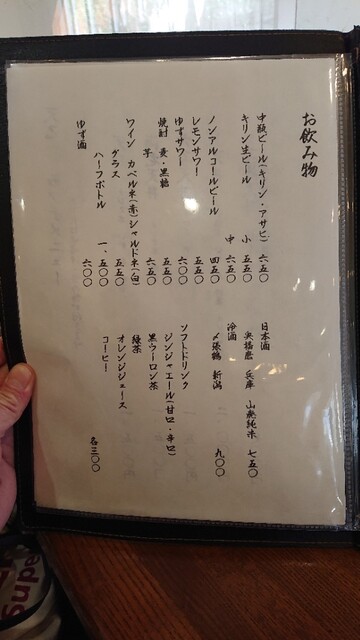 お飲み物
中瓶ビール(キリン・アサヒ) 六五〇
キリン生ビール 小 五五〇
中 六五〇
ノンアルコールビール 四五〇
レモンサワー 五五〇
ゆずサワー 六〇〇
焼酎 麦・黒糖 五五〇
芋 六五〇
ワイン カベルネ(赤)シャルドネ(白)
グラス 五五〇
ハーフボトル 一、五〇〇
ゆず酒 六〇〇
日本酒
奥播磨 兵庫 山廃純米 七五〇
冷酒
〆張鶴 新潟 九〇〇
ソフトドリンク
ジンジャエール(甘口・辛口)
黒ウーロン茶
緑茶
オレンジジュース
コーヒー
各三〇〇